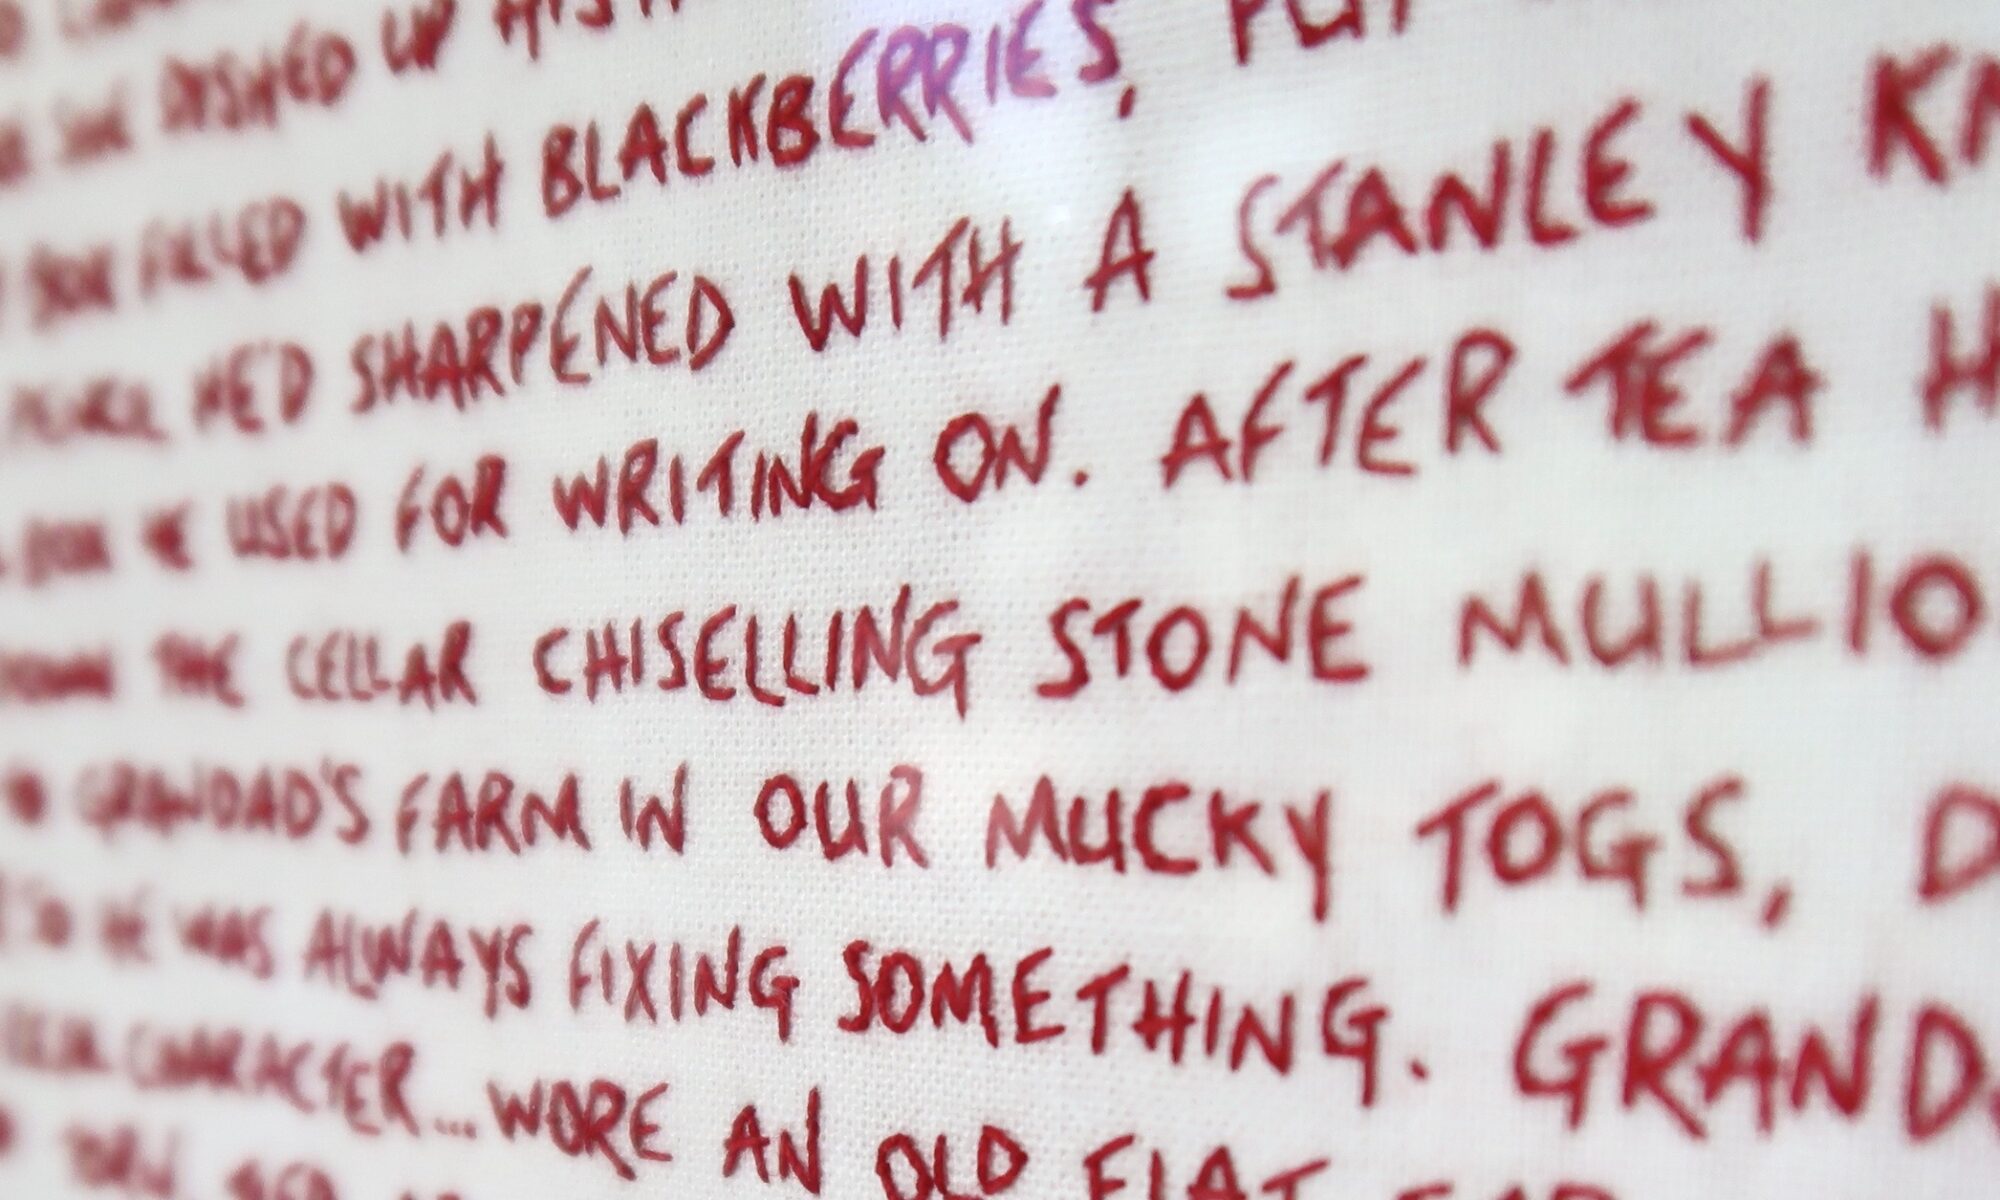 DISHED UP HIS
FILLED WITH BLACKBERRIES, PUT
HE'D SHARPENED WITH A STANLEY KN
HE USED FOR WRITING ON. AFTER TEA H
THE CELLAR CHISELLING STONE MULLIO
GRANDAD'S FARM IN OUR MUCKY TOGS, D
HE WAS ALWAYS FIXING SOMETHING. GRAND
CHARACTER... WORE AN OLD FLAT CAP